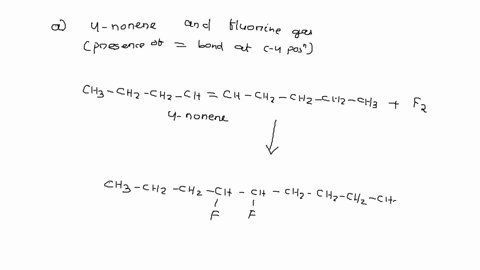 a) 4-nonene and fluorine gas
(presence of = bond at C-4 posⁿ)
CH3-CH2-CH2-CH=CH-CH2-CH2-CH2-CH3 + F2
4-nonene
CH3-CH2-CH2-CH-CH-CH2-CH2-CH2-CH
F F